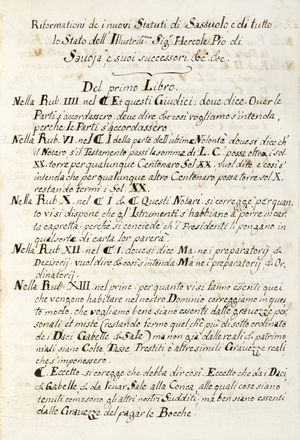 Riformationi de i nuovi Statuti di Sassuolo e di tutto
lo Stato dell' Illustriss. Sigr. Hercole Pio di
Savoja e suoi successori &c. &c.
Del primo Libro.
Nella Rub. IIII. nel C. Et questi Giudici: dove dice Over le
Parti s'accordassero. deve dire che così vogliamo s'intenda,
perche le Parti s'accordassero
Nella Rub. VI. nel C. I. dalla parte dell'ultime Volontà dove si dice ch'
il Notaro s'il Testamento passi la somma di L. C. possa oltra i sol.
XX. torre per qualunque Centonaro Sol. XX. vuol dire e così s'
intenda che per qualunque altro Centonaro possa torre sol. X.
restando termi i Sol. XX.
Nella Rub. X. nel C. I. & C. Questi Notari. si corregge per quan-
to vi si dispone che gl' Istrumenti s'habbiano à porre in car-
ta capretta. perche si conciede ch'i Presidenti li pongano in
qualsorte di carta lor parerà.
Nella Rub. XII. nel C. I. dove si dice Ma ne i preparatorij &
Decisorij. vuol dire & così s'intenda Mà ne i preparatorij & Or-
dinatorij.
Nella Rub. XIII. nel prine. per quanto vi si fanno esenti quei
che vengono habitare nel nostro Dominio correggiamo in ques-
to modo. che vogliamo bene siano esenti dalle gravezze per-
sonali et miste (restando termo quel ch'è più di sotto ordinato
de i Daci Gabelle & Sale) ma non già dalle reali di patrimo-
niali siano Colte Tasse Prestiti ò altre simili Gravezze reali
che s'imponessero.
C. Eccetto. si corregge che debba dir così. Eccetto che da i Daci,
& Gabelle & da levar Sale alla Conca alle quali cose siano
tenuti come sono gli altri nostri Sudditi; ma ben siano esenti
dalle Gravezze del pagar le Bocche.